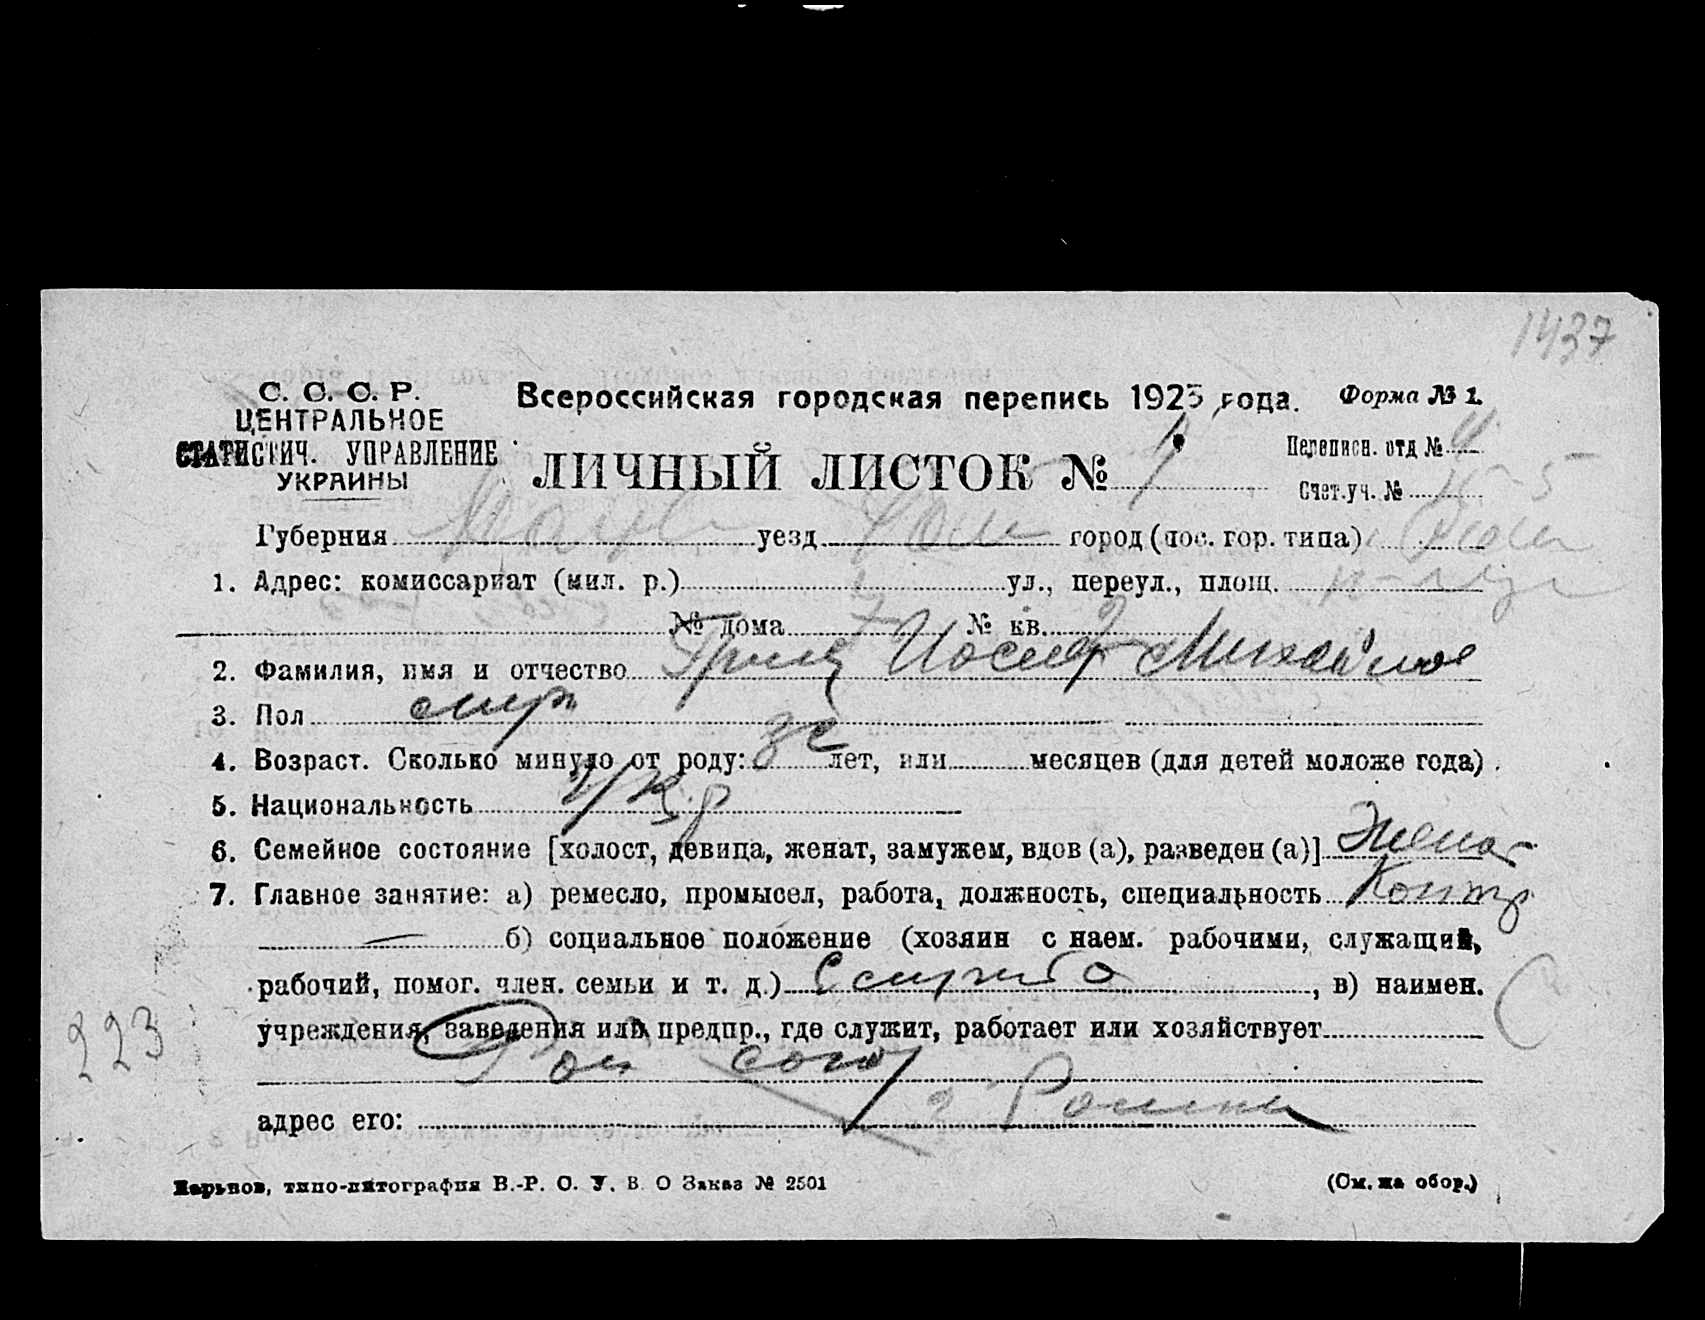 1437
С. С. С. Р.
ЦЕНТРАЛЬНОЕ
СТАТИСТИЧ. УПРАВЛЕНИЕ
УКРАИНЫ
Всероссийская городская перепись 1923 года.
Форма № 1.
ЛИЧНЫЙ ЛИСТОК № 1
Переписн. отд № 4
Счет.уч. №
Губерния уезд Ром город (пос. гор. типа)
1. Адрес: комиссариат (мил. р.) ул., переул., площ.
№ дома 7 № кв. 2
2. Фамилия, имя и отчество Гриц Иосиф Михайлов
3. Пол
4. Возраст. Сколько минуло от роду: лет, или месяцев (для детей моложе года).
5. Национальность Укр
6. Семейное состояние [холост, девица, женат, замужем, вдов (а), разведен (а)] Женат
7. Главное занятие: а) ремесло, промысел, работа, должность, специальность Контр
б) социальное положение (хозяин с наем. рабочими, служащий,
рабочий, помог. член. семьи и т. д.) , в) наимен.
учреждения, заведения или предпр., где служит, работает или хозяйствует
223
Рай союз
адрес его: г Ромны
Харьков, типо-литография В.-Р. О. У. В О Заказ № 2501
(См. на обор.)